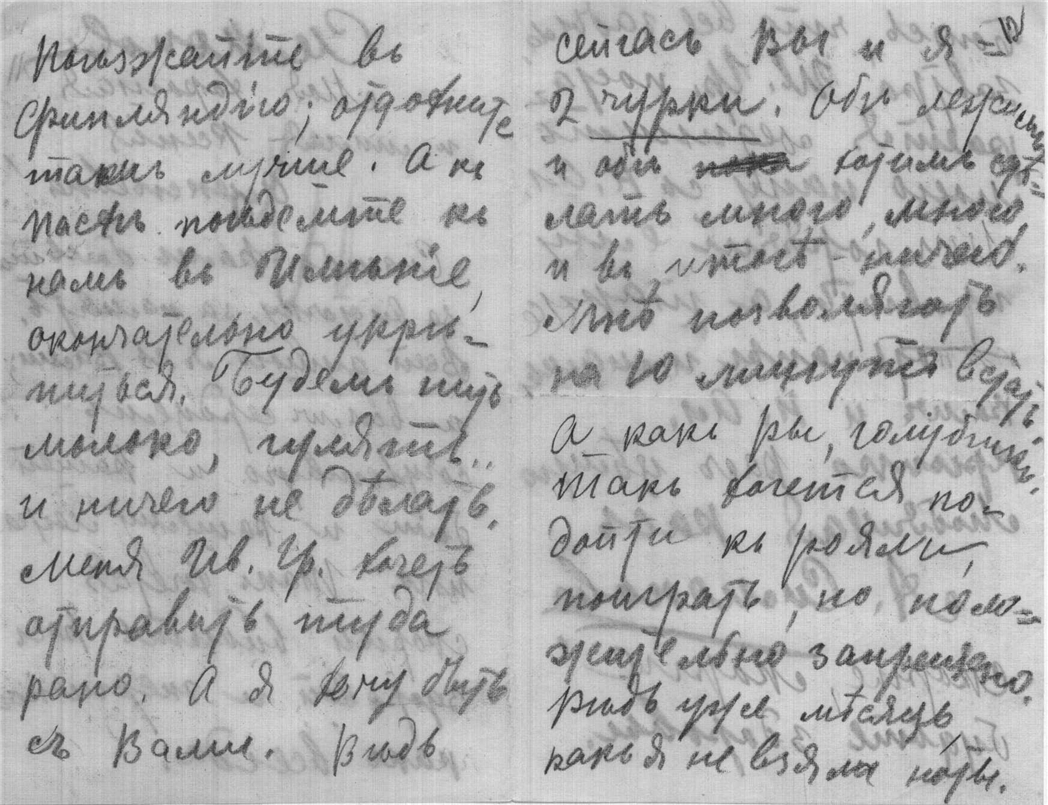 Поѣзжайте въ
Финляндію; отдохните
тамъ лучше. А на
Пасть поѣдемте къ
намъ въ Имѣніе,
окончательно укрѣ-
питься. Будемъ пить
молоко, гулять..
и ничего не дѣлать.
меня Ив. Гр. хочетъ
отправить туда
рано. А я хочу быть
съ Вами. Вѣдь
сейчасъ Вы и я =
2 чурки. Обѣ лежимъ
и обѣ хотимъ сдѣ=
лать много, много
и въ итогѣ - ничего.
Мнѣ позволяютъ
на 10 минутъ встать.
А какъ Вы, голубчикъ.
Такъ хочется по-
дойти къ роялю,
поиграть, но поло=
жительно запрещено.
Вѣдь уже мѣсяцъ,
какъ я не взяла ноты.